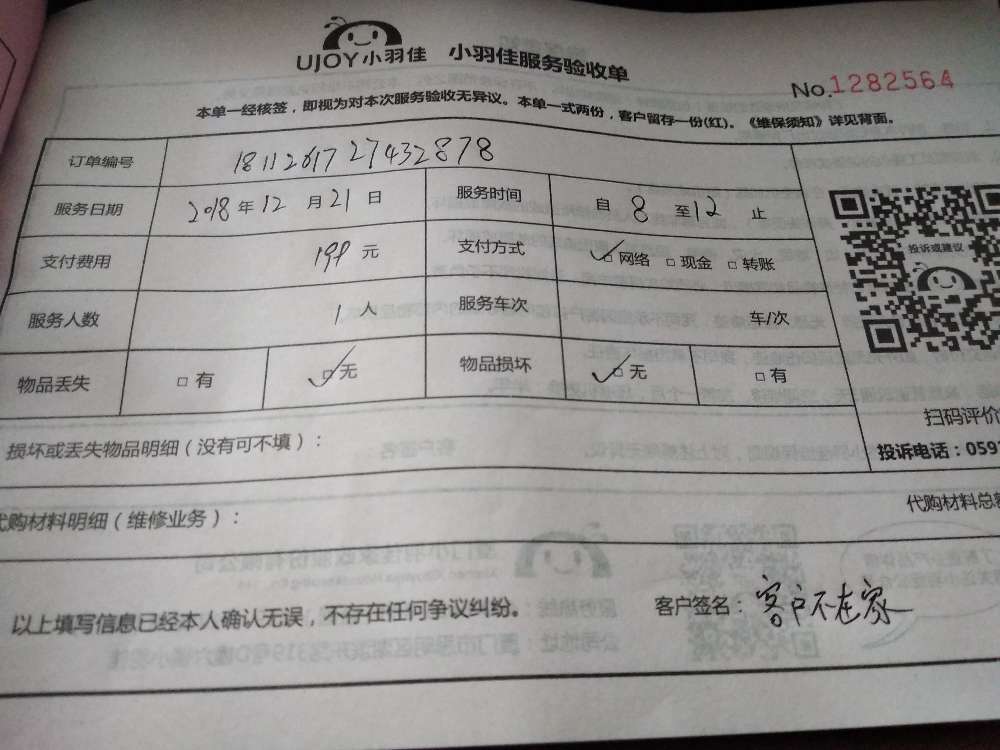 UJOY小羽佳 小羽佳服务验收单
No.1282564
本单一经核签，即视为对本次服务验收无异议。本单一式两份，客户留存一份(红)。《维保须知》详见背面。
订单编号 1811261727432878
服务日期 2018年12月21日 服务时间 自8至12止
支付费用 199元 支付方式 ✓□网络 □现金 □转账
投诉或建议
服务人数 1人 服务车次 车/次
物品丢失 □有 ✓□无 物品损坏 ✓□无 □有
扫码评价
损坏或丢失物品明细（没有可不填）：
投诉电话：059
代购材料明细（维修业务）：
代购材料总
以上填写信息已经本人确认无误，不存在任何争议纠纷。 客户签名：客户不在家